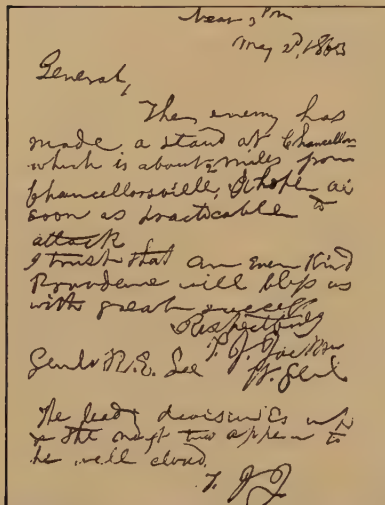 Near 3 Pm
May 2d, 1863
General,
The enemy has
made a stand at Chancellors
which is about 2 miles from
Chancellorsville, I hope as
soon as practicable to
attack
I trust that an Ever Kind
Providence will bless us
with great success
Respectfully
T. J. Jackson
Genl R. E. Lee Lt. Genl
The leading division is up
& the next two appear to
be well closed.
T. J. J